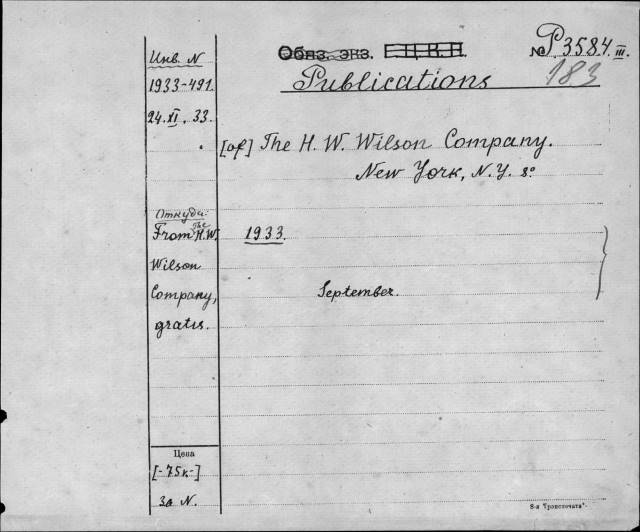 Инв. N
1933-491.
24.XI.33.
Обяз. экз. Е.Ц.К.Н.
№ P3584 III.
183
Publications
[of] The H. W. Wilson Company.
New York, N.Y. 8°
Откуда:
From the H.W.
Wilson
Company,
gratis.
1933.
September.
Цена
[-75к-]
За N.
8-я "Транспечать"